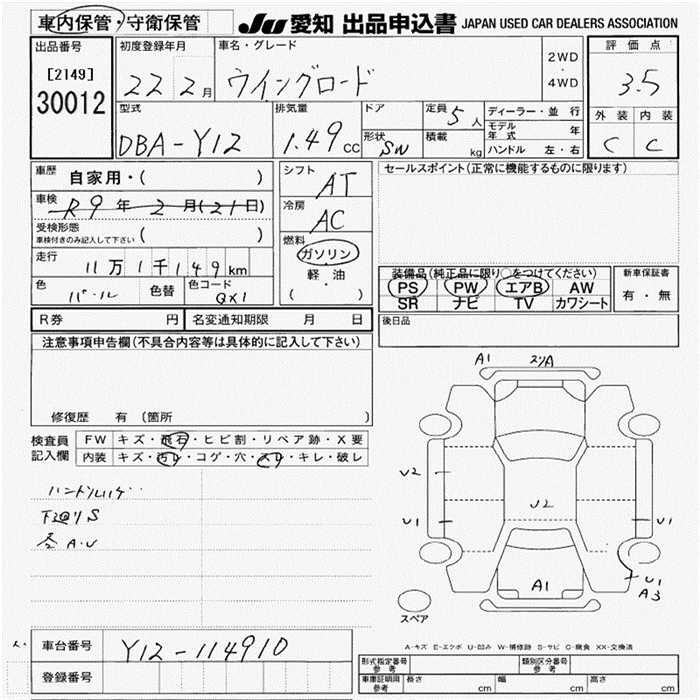 車内保管・守衛保管
JU 愛知 出品申込書 JAPAN USED CAR DEALERS ASSOCIATION
出品番号
[2149]
30012
初度登録年月
22 2月
車名・グレード
ウイングロード
2WD
・
4WD
評価点
3.5
外装 内装
C C
型式
DBA-Y12
排気量
1.49cc
ドア
定員 5人
形状 SW
積載 kg
ディーラー・並行
モデル年式 年
ハンドル 左・右
車歴 自家用・( )
車検 R9年2月(21日)
受検形態
車検付きのみ記入して下さい ( )
走行 11万1千149km
色 パール 色替 色コード QX1
シフト AT
冷房 AC
燃料
ガソリン
軽・油
( )
セールスポイント(正常に機能するものに限ります)
装備品(純正品に限り○をつけてください)
PS PW エアB AW
SR ナビ TV カワシート
新車保証書
有・無
R券 円 名変通知期限 月 日
後日品
注意事項申告欄(不具合内容等は具体的に記入して下さい)
修復歴 有(箇所
検査員記入欄
FW キズ・飛石・ヒビ割・リペア跡・X要
内装 キズ・汚レ・コゲ・穴・スレ・キレ・破レ
下廻りS
A.U
A1
スリA
U2
U1
J2
U1
A1
U1
A3
スペア
A-キズ E-エクボ U-凹み W-補修跡 S-サビ C-腐食 XX-交換済
車台番号 Y12-114910
登録番号
形式指定番号 参考
類別区分番号 参考
車庫証明用 参考 長さ cm 幅 cm 高さ cm